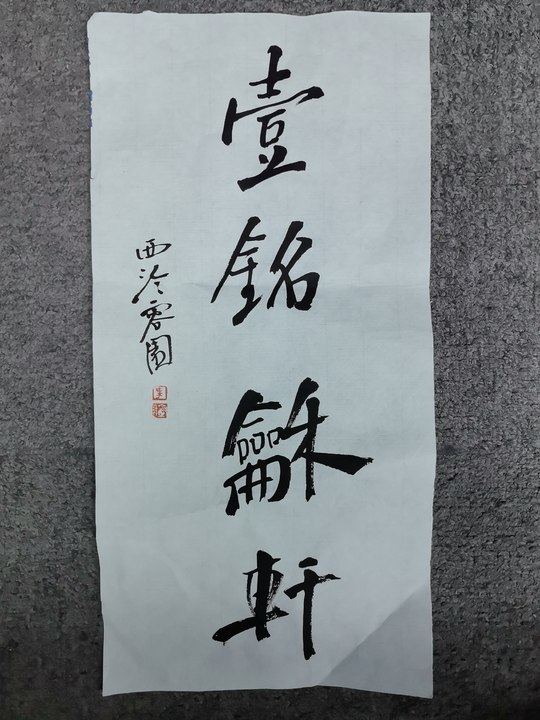 壹銘龢軒
西泠雲園